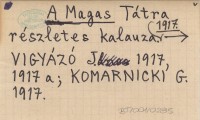 A Magas Tátra
részletes kalauza 1917. →
VIGYÁZÓ J. 1917,
1917a; KOMARNICKI G.
1917.